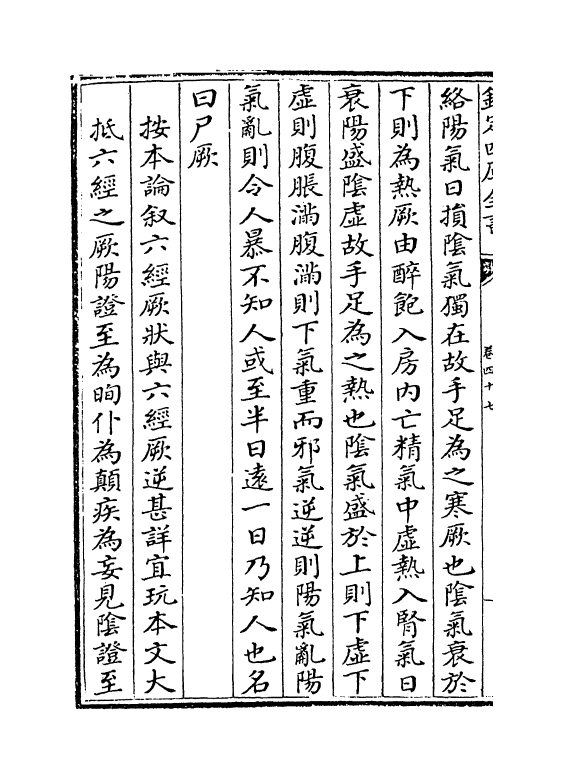 欽定四庫全書
卷四十七
絡陽氣日損陰氣獨在故手足為之寒厥也陰氣衰於
下則為熱厥由醉飽入房内亡精氣中虛熱入腎氣日
衰陽盛陰虛故手足為之熱也陰氣盛於上則下虛下
虛則腹脹滿腹滿則下氣重而邪氣逆逆則陽氣亂陽
氣亂則令人暴不知人或至半日遠一日乃知人也名
曰尸厥
按本論叙六經厥狀與六經厥逆甚詳宜玩本文大
抵六經之厥陽證至為眴仆為顛疾為妄見陰證至